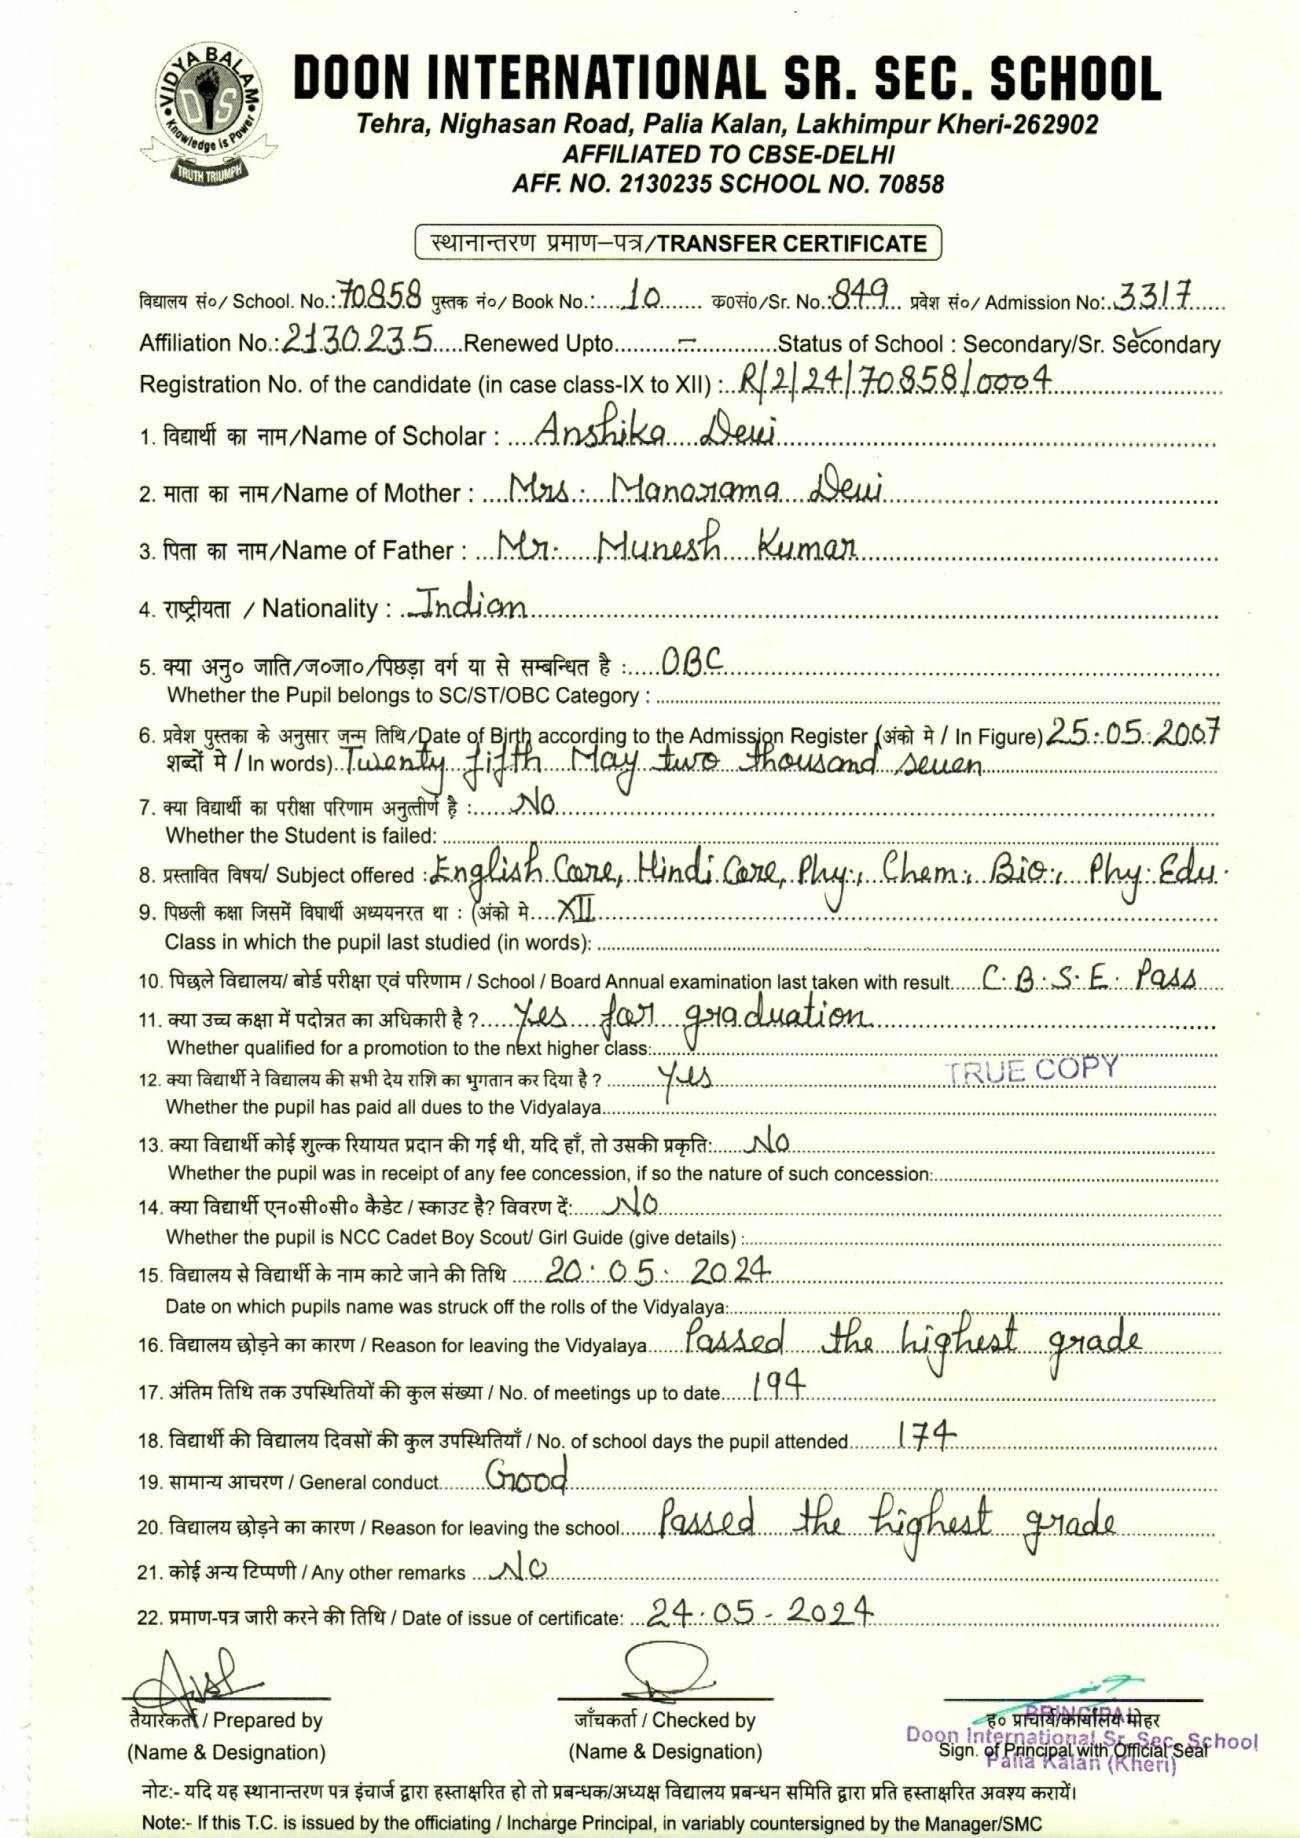 VIDYA BALAM
DIS
Knowledge is Power
TRUTH TRIUMPH
DOON INTERNATIONAL SR. SEC. SCHOOL
Tehra, Nighasan Road, Palia Kalan, Lakhimpur Kheri-262902
AFFILIATED TO CBSE-DELHI
AFF. NO. 2130235 SCHOOL NO. 70858
स्थानान्तरण प्रमाण–पत्र/TRANSFER CERTIFICATE
विद्यालय सं०/ School. No.: 70858 पुस्तक नं०/ Book No.: 10 क०सं०/Sr. No.: 849 प्रवेश सं०/ Admission No: 3317
Affiliation No.: 2130235 Renewed Upto - Status of School : Secondary/Sr. Secondary
Registration No. of the candidate (in case class-IX to XII) : R/2/24/70858/0004
1. विद्यार्थी का नाम/Name of Scholar : Anshika Devi
2. माता का नाम/Name of Mother : Mrs. Manorama Devi
3. पिता का नाम/Name of Father : Mr. Munesh Kumar
4. राष्ट्रीयता / Nationality : Indian
5. क्या अनु० जाति/ज०जा०/पिछड़ा वर्ग या से सम्बन्धित है : OBC
Whether the Pupil belongs to SC/ST/OBC Category :
6. प्रवेश पुस्तका के अनुसार जन्म तिथि/Date of Birth according to the Admission Register (अंको मे / In Figure) 25.05.2007
शब्दों मे / In words) Twenty fifth May two thousand seven
7. क्या विद्यार्थी का परीक्षा परिणाम अनुत्तीर्ण है : No
Whether the Student is failed:
8. प्रस्तावित विषय/ Subject offered : English Core, Hindi Core, Phy., Chem., Bio., Phy. Edu.
9. पिछली कक्षा जिसमें विघार्थी अध्ययनरत था : (अंको मे XII
Class in which the pupil last studied (in words):
10. पिछले विद्यालय/ बोर्ड परीक्षा एवं परिणाम / School / Board Annual examination last taken with result C.B.S.E. Pass
11. क्या उच्च कक्षा में पदोन्नत का अधिकारी है ? Yes for graduation
Whether qualified for a promotion to the next higher class:
12. क्या विद्यार्थी ने विद्यालय की सभी देय राशि का भुगतान कर दिया है ? Yes TRUE COPY
Whether the pupil has paid all dues to the Vidyalaya
13. क्या विद्यार्थी कोई शुल्क रियायत प्रदान की गई थी, यदि हाँ, तो उसकी प्रकृति: No
Whether the pupil was in receipt of any fee concession, if so the nature of such concession:
14. क्या विद्यार्थी एन०सी०सी० कैडेट / स्काउट है? विवरण दें: No
Whether the pupil is NCC Cadet Boy Scout/ Girl Guide (give details) :
15. विद्यालय से विद्यार्थी के नाम काटे जाने की तिथि 20.05.2024
Date on which pupils name was struck off the rolls of the Vidyalaya:
16. विद्यालय छोड़ने का कारण / Reason for leaving the Vidyalaya Passed the highest grade
17. अंतिम तिथि तक उपस्थितियों की कुल संख्या / No. of meetings up to date 194
18. विद्यार्थी की विद्यालय दिवसों की कुल उपस्थितियाँ / No. of school days the pupil attended 174
19. सामान्य आचरण / General conduct Good
20. विद्यालय छोड़ने का कारण / Reason for leaving the school Passed the highest grade
21. कोई अन्य टिप्पणी / Any other remarks No
22. प्रमाण-पत्र जारी करने की तिथि / Date of issue of certificate: 24.05-2024
तैयारकर्ता / Prepared by जाँचकर्ता / Checked by ह० प्राचार्य/कार्यालय मोहर
PRINCIPAL
Doon International Sr. Sec. School
(Name & Designation) (Name & Designation) Sign. of Principal with Official Seal
Palia Kalan (Kheri)
नोटः- यदि यह स्थानान्तरण पत्र इंचार्ज द्वारा हस्ताक्षरित हो तो प्रबन्धक/अध्यक्ष विद्यालय प्रबन्धन समिति द्वारा प्रति हस्ताक्षरित अवश्य करायें।
Note:- If this T.C. is issued by the officiating / Incharge Principal, in variably countersigned by the Manager/SMC